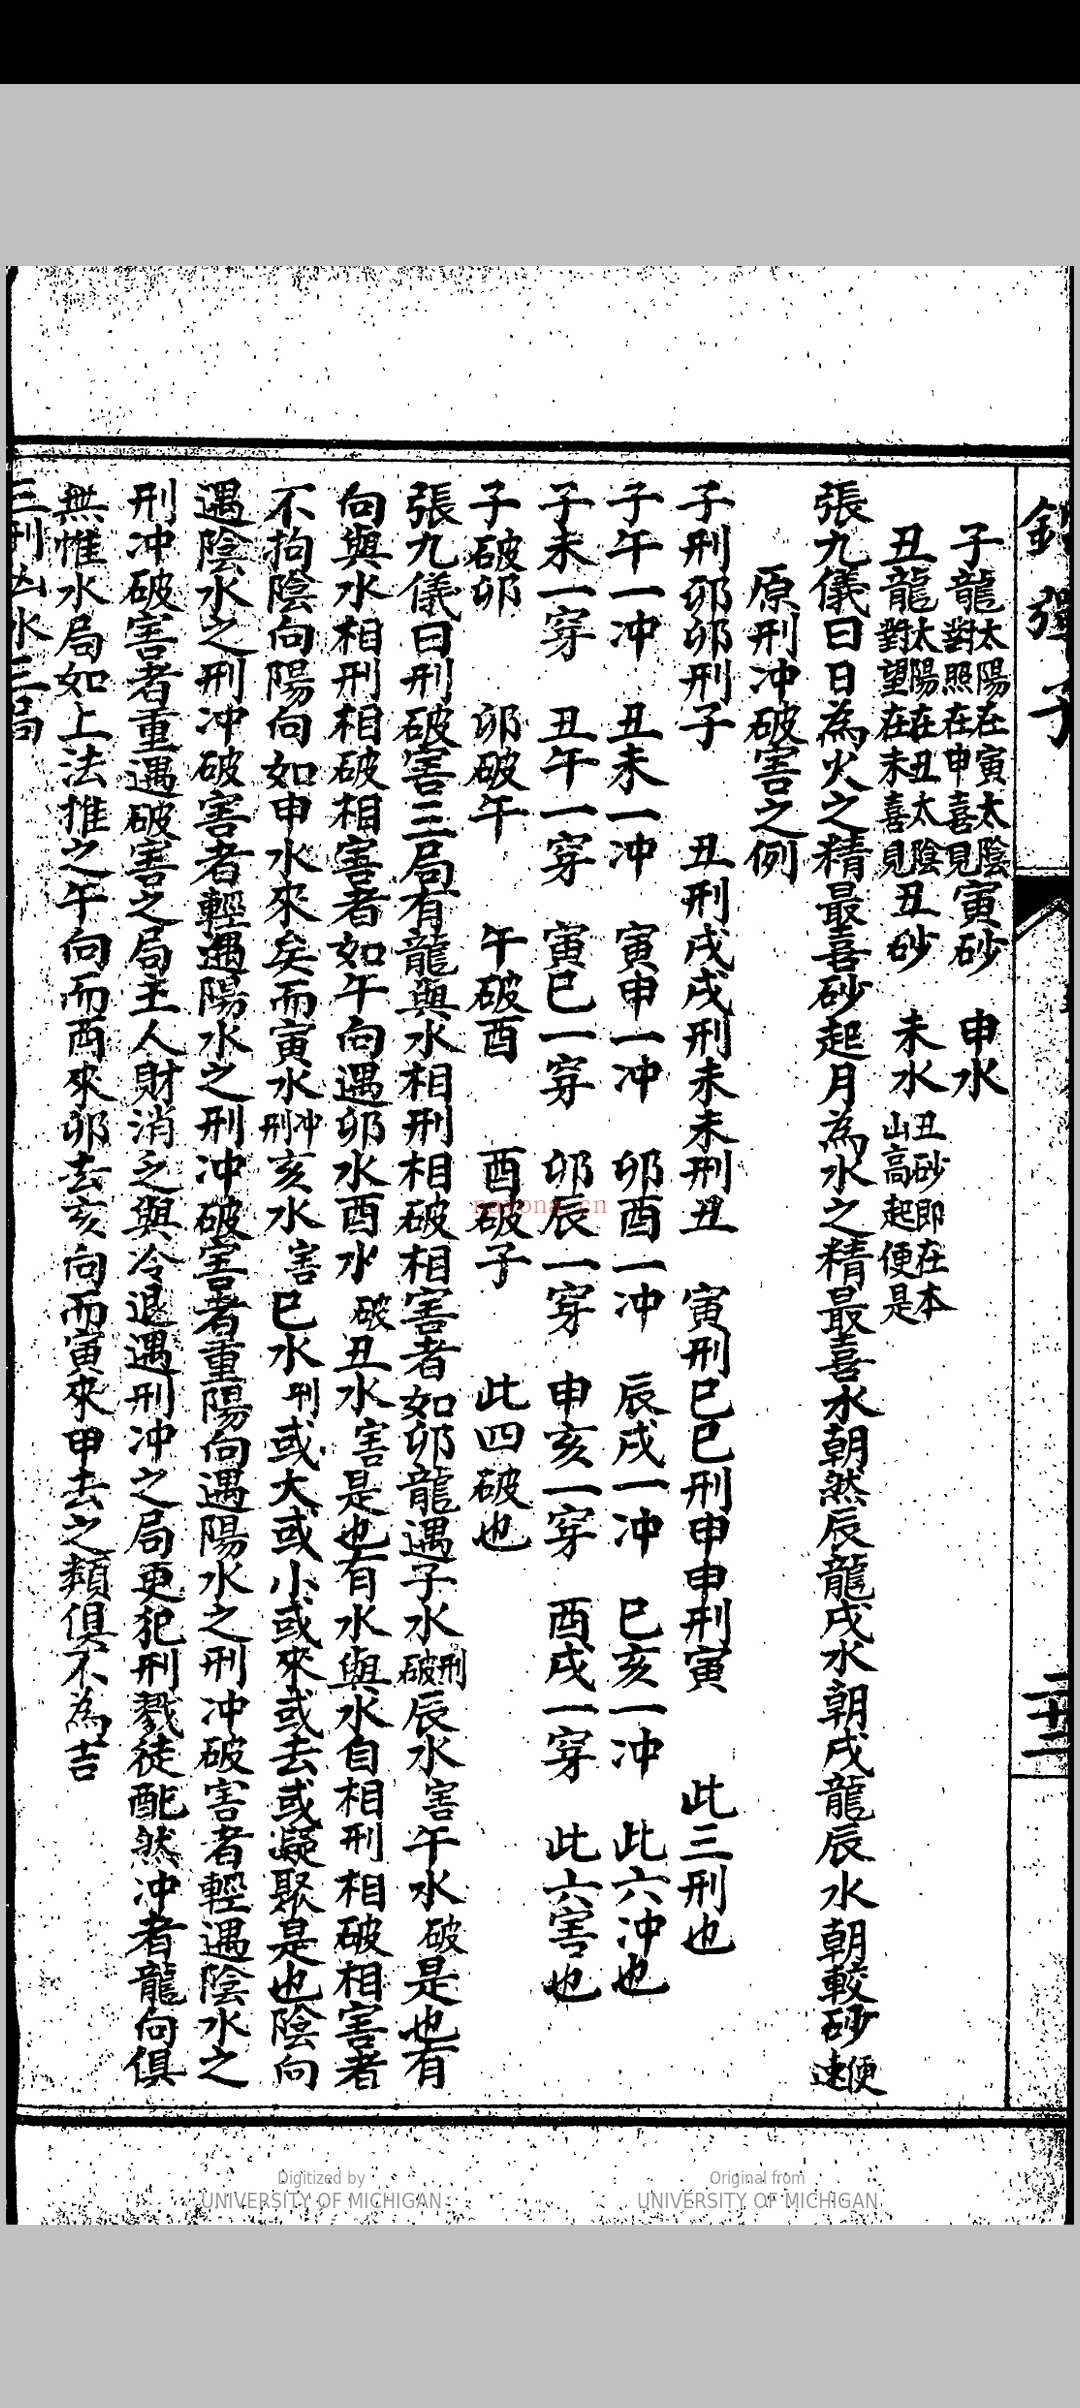 子龍太陽在寅太陰對照在申喜見寅砂　申水
丑龍太陽在丑太陰對望在未喜見丑砂　未水丑砂即在本山高起便是
張九儀曰日為火之精最喜砂起月為水之精最喜水朝然辰龍戌水朝戌龍辰水朝較砂便速
原刑冲破害之例
子刑卯卯刑子　丑刑戌戌刑未未刑丑　寅刑巳巳刑申申刑寅　此三刑也
子午一冲　丑未一冲　寅申一冲　卯酉一冲　辰戌一冲　巳亥一冲　此六冲也
子未一穿　丑午一穿　寅巳一穿　卯辰一穿　申亥一穿　酉戌一穿　此六害也
子破卯　卯破午　午破酉　酉破子　此四破也
張九儀曰刑破害三局有龍與水相刑相破相害者如卯龍遇子水刑破辰水害午水破是也有
向與水相刑相破相害者如午向遇卯水酉水破丑水害是也有水與水自相刑相破相害者
不拘陰向陽向如申水來矣而寅水冲刑亥水害巳水刑或大或小或來或去或凝聚是也陰向
遇陰水之刑冲破害者輕遇陽水之刑冲破害者重陽向遇陽水之刑冲破害者輕遇陰水之
刑冲破害者重遇破害之局主人財消乏與冷退遇刑冲之局更犯刑戮徒配然冲者龍向俱
無惟水局如上法推之午向而酉來卯去亥向而寅來申去之類俱不為吉
三刑凶水三局
彈子
二十二
nayona.cn
Digitized by
UNIVERSITY OF MICHIGAN
Original from
UNIVERSITY OF MICHIGAN